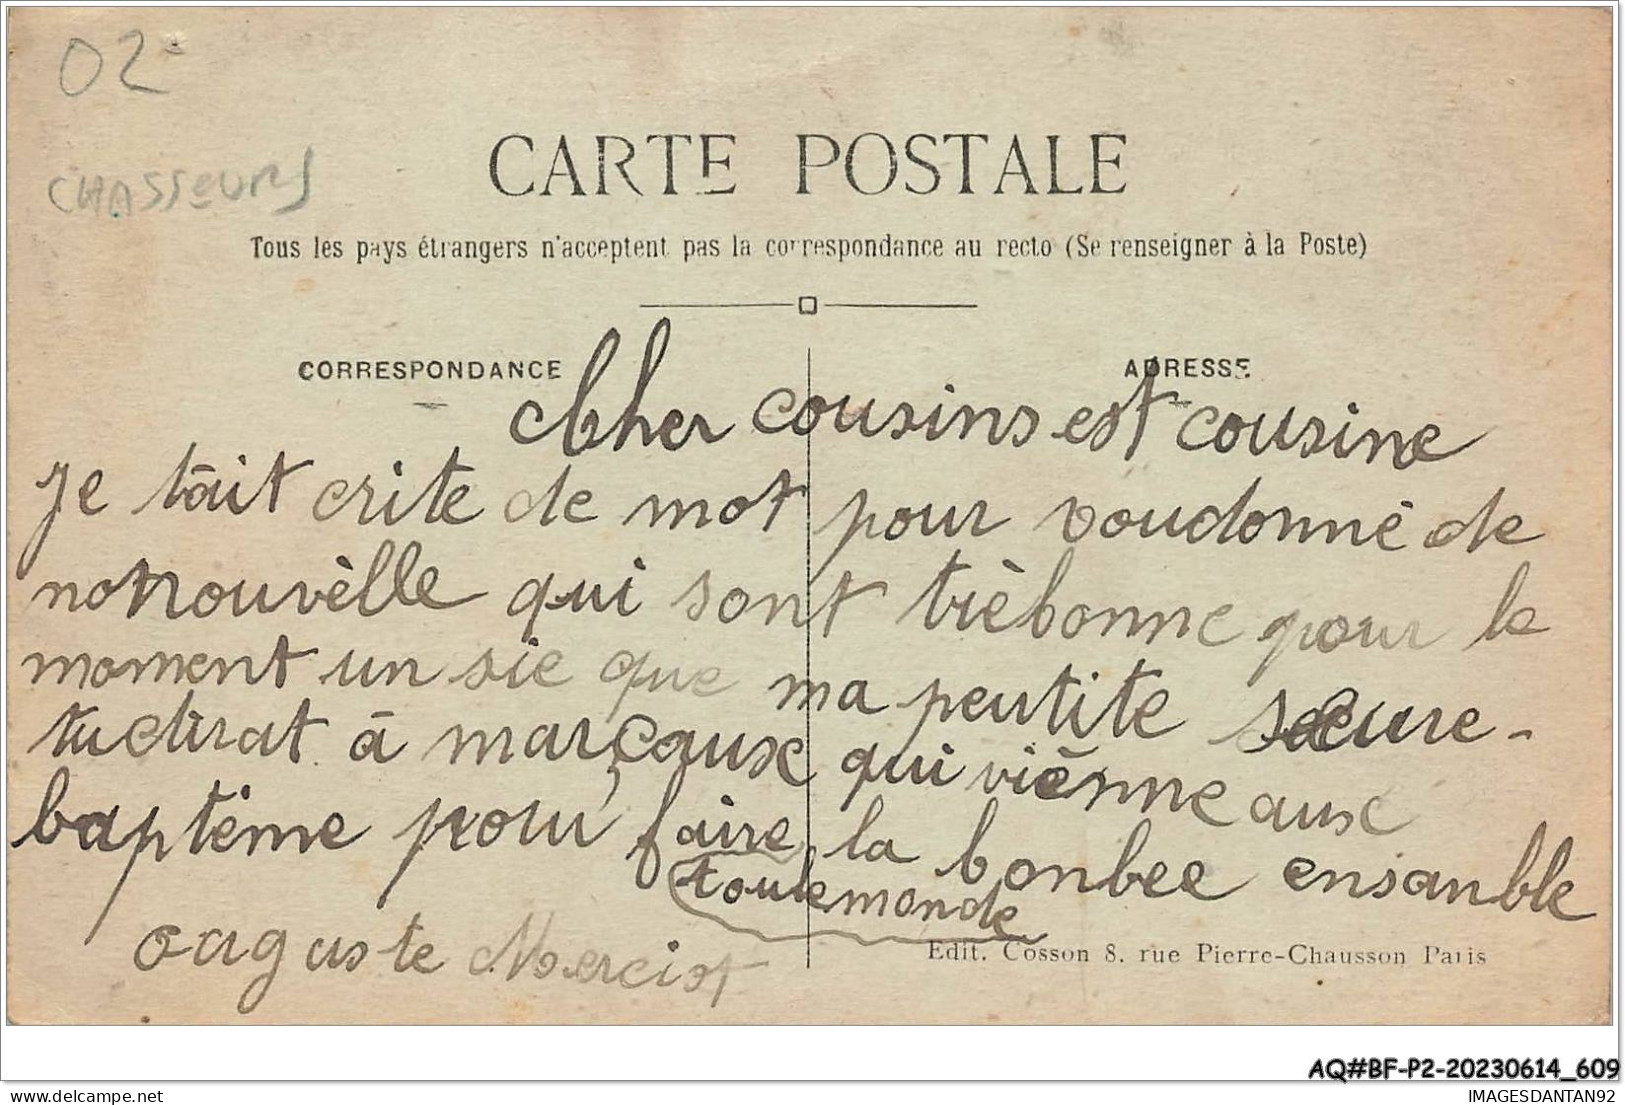 02
CHASSEURS
CARTE POSTALE
Tous les pays étrangers n'acceptent pas la correspondance au recto (Se renseigner à la Poste)
CORRESPONDANCE
ADRESSE
Cher cousins est cousine
Je tait crite de mot pour voudonné de
no nouvèlle qui sont trèbonne pour le
moment un sie que ma peutite sœure
tudirat à marçaux qui viènne aux
baptéme pour faire la bonbee ensanble
toulemonde
oaguste Merciot
Edit. Cosson 8. rue Pierre-Chausson Paris
AQ#BF-P2-20230614_609
delcampe.net
IMAGESDANTAN92